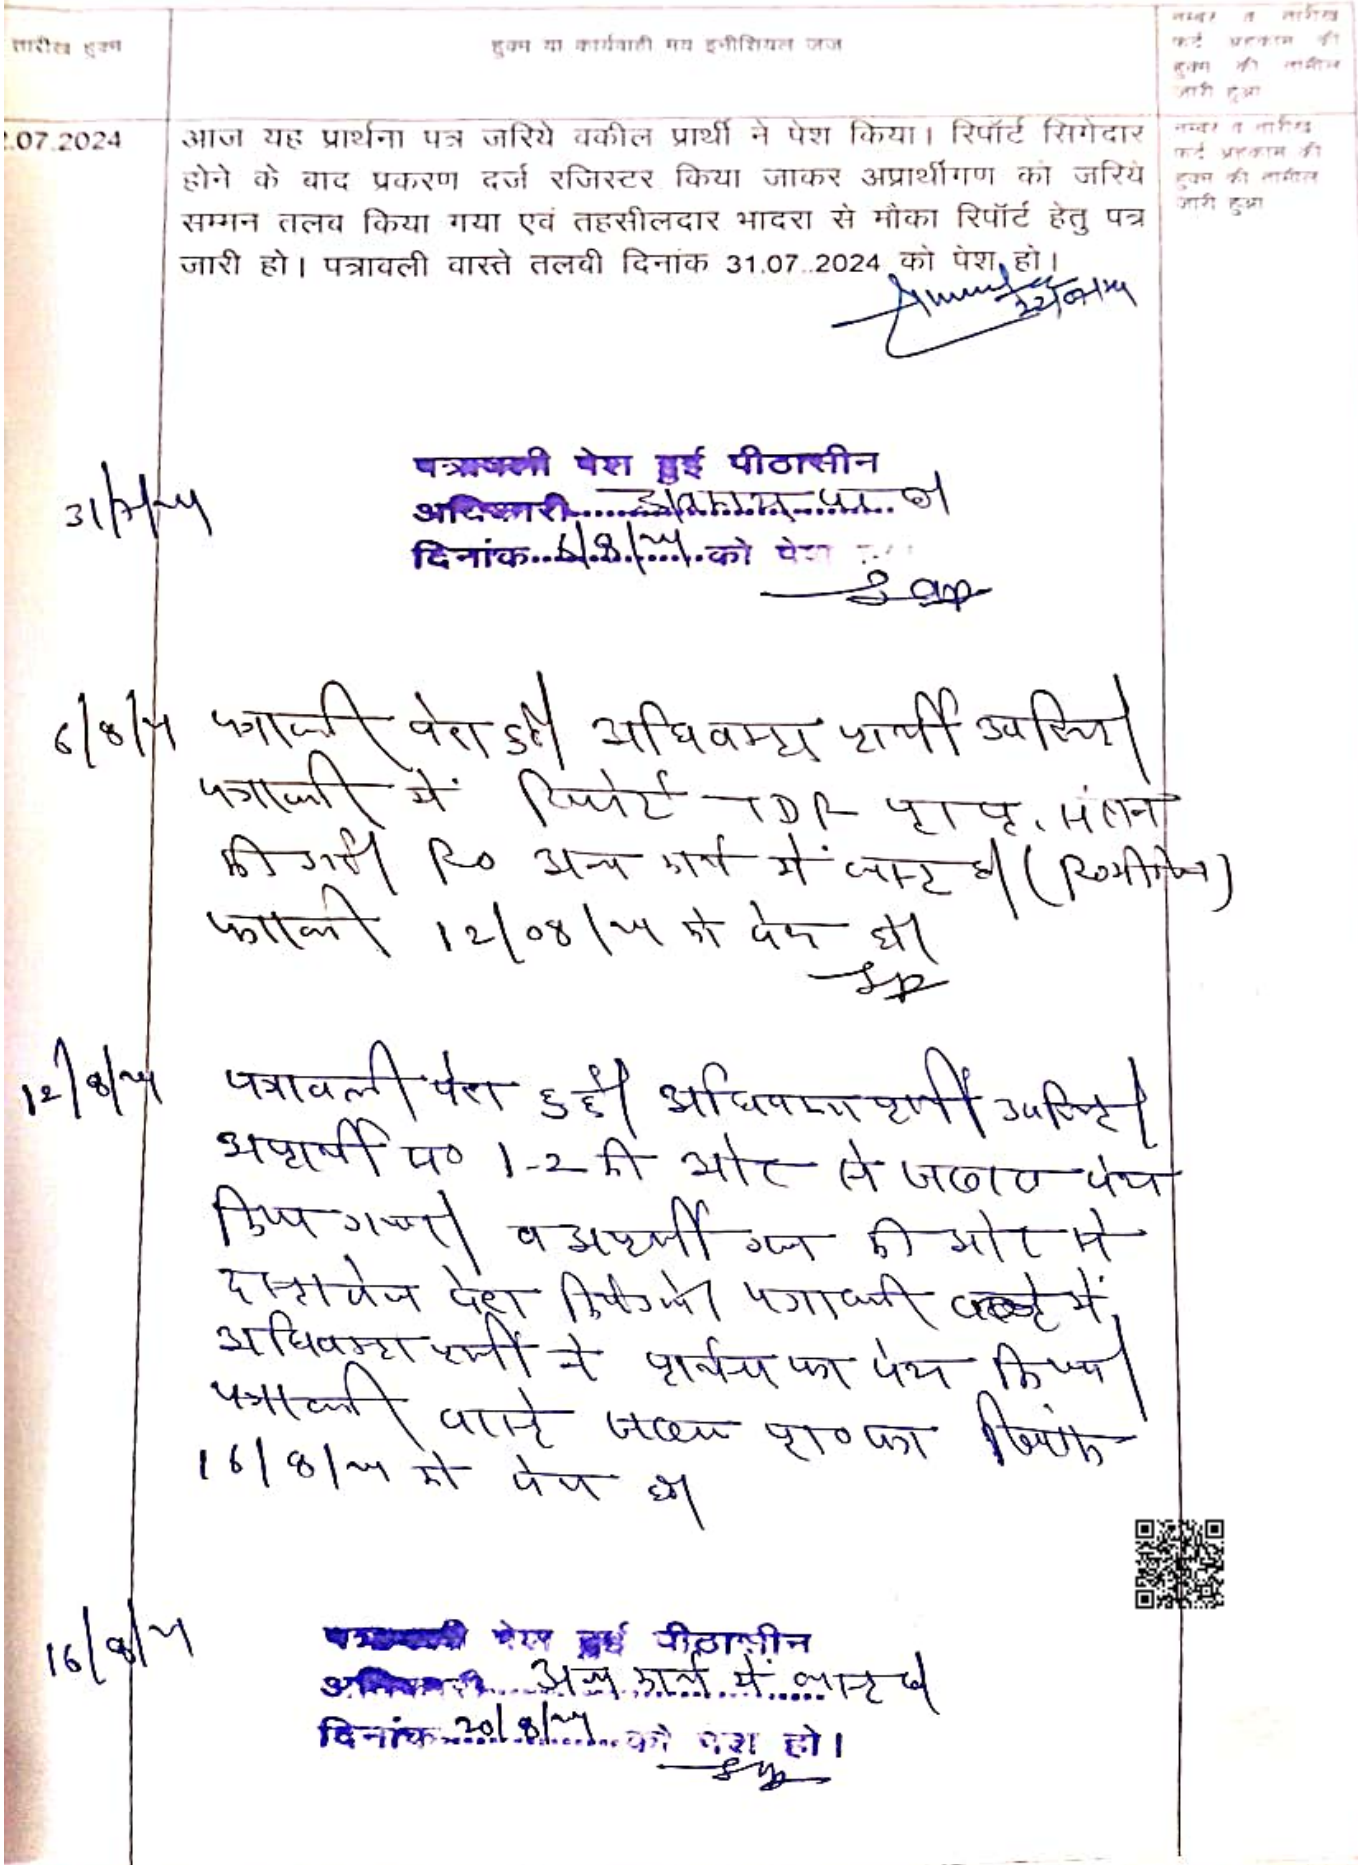 तारीख हुक्म
हुक्म या कार्यवाही मय इनीशियल जज
नम्बर व तारीख
फर्द अहकाम की
हुक्म की तामील
जारी हुआ
.07.2024
आज यह प्रार्थना पत्र जरिये वकील प्रार्थी ने पेश किया। रिपॉर्ट सिगेदार
होने के बाद प्रकरण दर्ज रजिस्टर किया जाकर अप्रार्थीगण को जरिये
सम्मन तलब किया गया एवं तहसीलदार भादरा से मौका रिपॉर्ट हेतु पत्र
जारी हो। पत्रावली वास्ते तलवी दिनांक 31.07..2024 को पेश हो।
नम्बर व तारीख
फर्द अहकाम की
हुक्म की तामील
जारी हुआ
22/07/24
31/7/24
पत्रावली पेश हुई पीठासीन
अधिकारी
दिनांक...6/8/24...को पेश
6/8/24
पत्रावली पेश हुई। अधिवक्ता प्रार्थी उपस्थित।
पत्रावली में रिपोर्ट TDR संलग्न
की गई। अन्य कार्य में व्यस्त है।
पत्रावली 12/08/24 को पेश हो।
12/8/24
पत्रावली पेश हुई। अधिवक्ता प्रार्थी उपस्थित।
अप्रार्थी सं० 1-2 की ओर से जवाब पेश
किया गया। व अप्रार्थी गण की ओर से
दस्तावेज पेश किये गये। पत्रावली में
अधिवक्ता प्रार्थी ने प्रार्थना पत्र पेश किया।
पत्रावली वास्ते जवाब प्रा० पत्र दिनांक
16/8/24 को पेश हो।
16/8/24
पत्रावली पेश हुई पीठासीन
अधिकारी...अन्य कार्य में व्यस्त है।
दिनांक...20/8/24...को पेश हो।